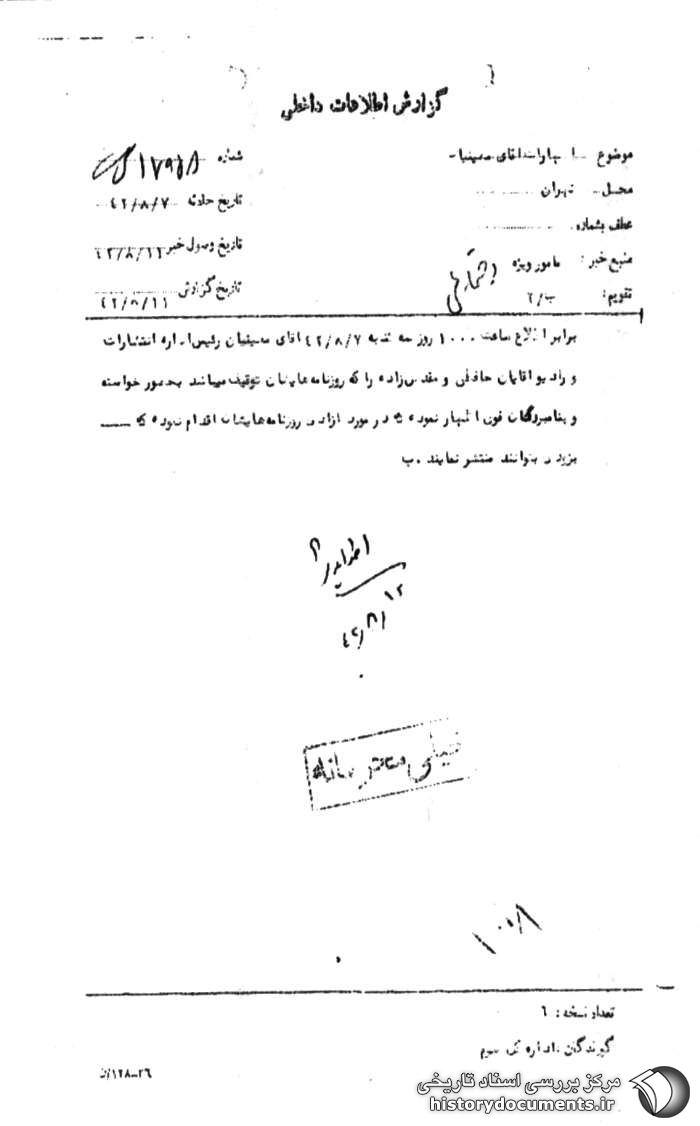 گزارش اطلاعات داخلی
موضوع اظهارات آقای معینیان
شماره ۱۷۹۸۸
محل تهران
تاریخ حادثه ۴۲/۸/۷
عطف بشماره
تاریخ وصول خبر ۴۲/۸/۱۱
منبع خبر: مامور ویژه
تاریخ گزارش ۴۲/۸/۱۱
تقویم: ب/۲
برابر اطلاع ساعت ۱۰۰۰ روز سه شنبه ۴۲/۸/۷ آقای معینیان رئیس اداره انتشارات
و رادیو آقایان حافظی و مقدس‌زاده را که روزنامه‌هایشان توقیف میباشد بحضور خواسته
و بنامبردگان فوق اظهار نموده که در مورد آزادی روزنامه‌هایشان اقدام نموده که
بزودی بتوانند منتشر نمایند .ب
۴۲/۸/۱۲
خیلی محرمانه
۱۰۰/۸
تعداد نسخه: ۶
گیرندگان: اداره کل سوم
۱۲۸-۲۶/ن
مرکز بررسی اسناد تاریخی
historydocuments.ir